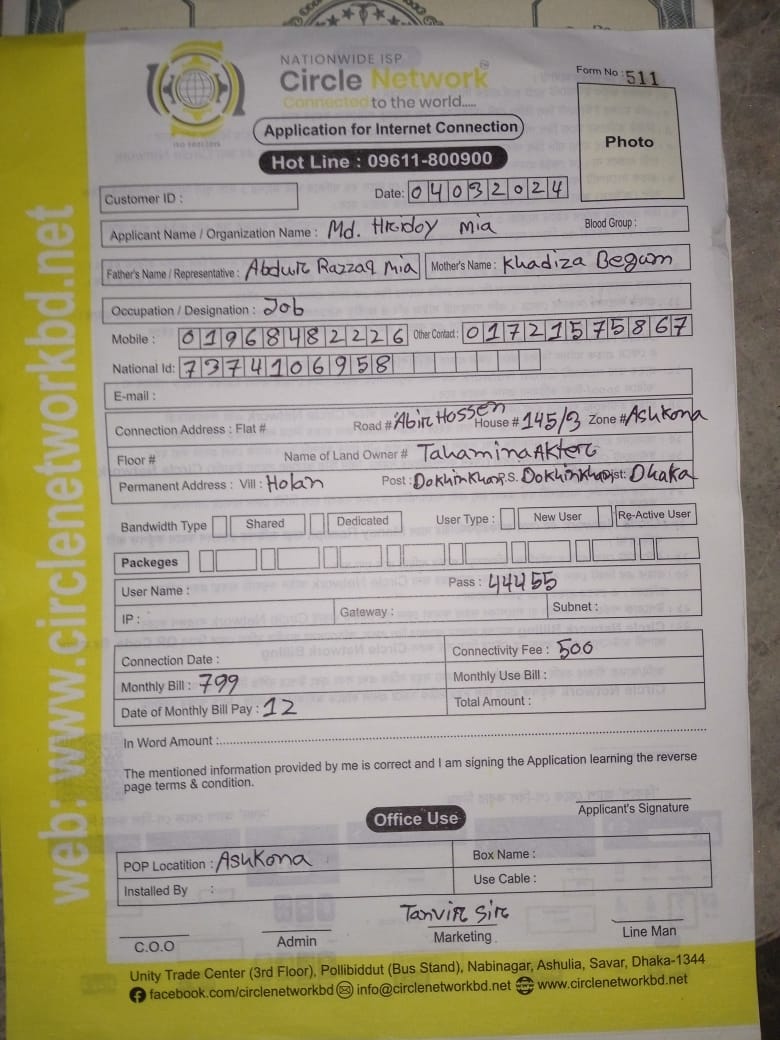 NATIONWIDE ISP
Circle Network
Connected to the world.....
ISO 9001:2015
Form No : 511
Application for Internet Connection
Photo
Hot Line : 09611-800900
Customer ID :
Date: 04032024
Applicant Name / Organization Name : Md. Hridoy Mia Blood Group :
Father's Name / Representative : Abdur Razzaq Mia Mother's Name : Khadiza Begum
Occupation / Designation : Job
Mobile : 01968482226 Other Contact : 01721575867
National Id: 7374106958
E-mail :
Connection Address : Flat # Road # Abir Hossen House # 145/3 Zone # Ashkona
Floor # Name of Land Owner # Tahamina Akter
Permanent Address : Vill : Holan Post : Dokhinkhan P.S. Dokhinkhan Dist: Dhaka
Bandwidth Type Shared Dedicated User Type : New User Re-Active User
Packeges
User Name : Pass : 44455
IP : Gateway : Subnet :
Connection Date : Connectivity Fee : 500
Monthly Bill : 799 Monthly Use Bill :
Date of Monthly Bill Pay : 12 Total Amount :
In Word Amount :
The mentioned information provided by me is correct and I am signing the Application learning the reverse
page terms & condition.
Applicant's Signature
Office Use
POP Locatition : Ashkona Box Name :
Installed By : Use Cable :
Tanvir Sir
C.O.O Admin Marketing Line Man
Unity Trade Center (3rd Floor), Pollibiddut (Bus Stand), Nabinagar, Ashulia, Savar, Dhaka-1344
facebook.com/circlenetworkbd info@circlenetworkbd.net www.circlenetworkbd.net
web: www.circlenetworkbd.net